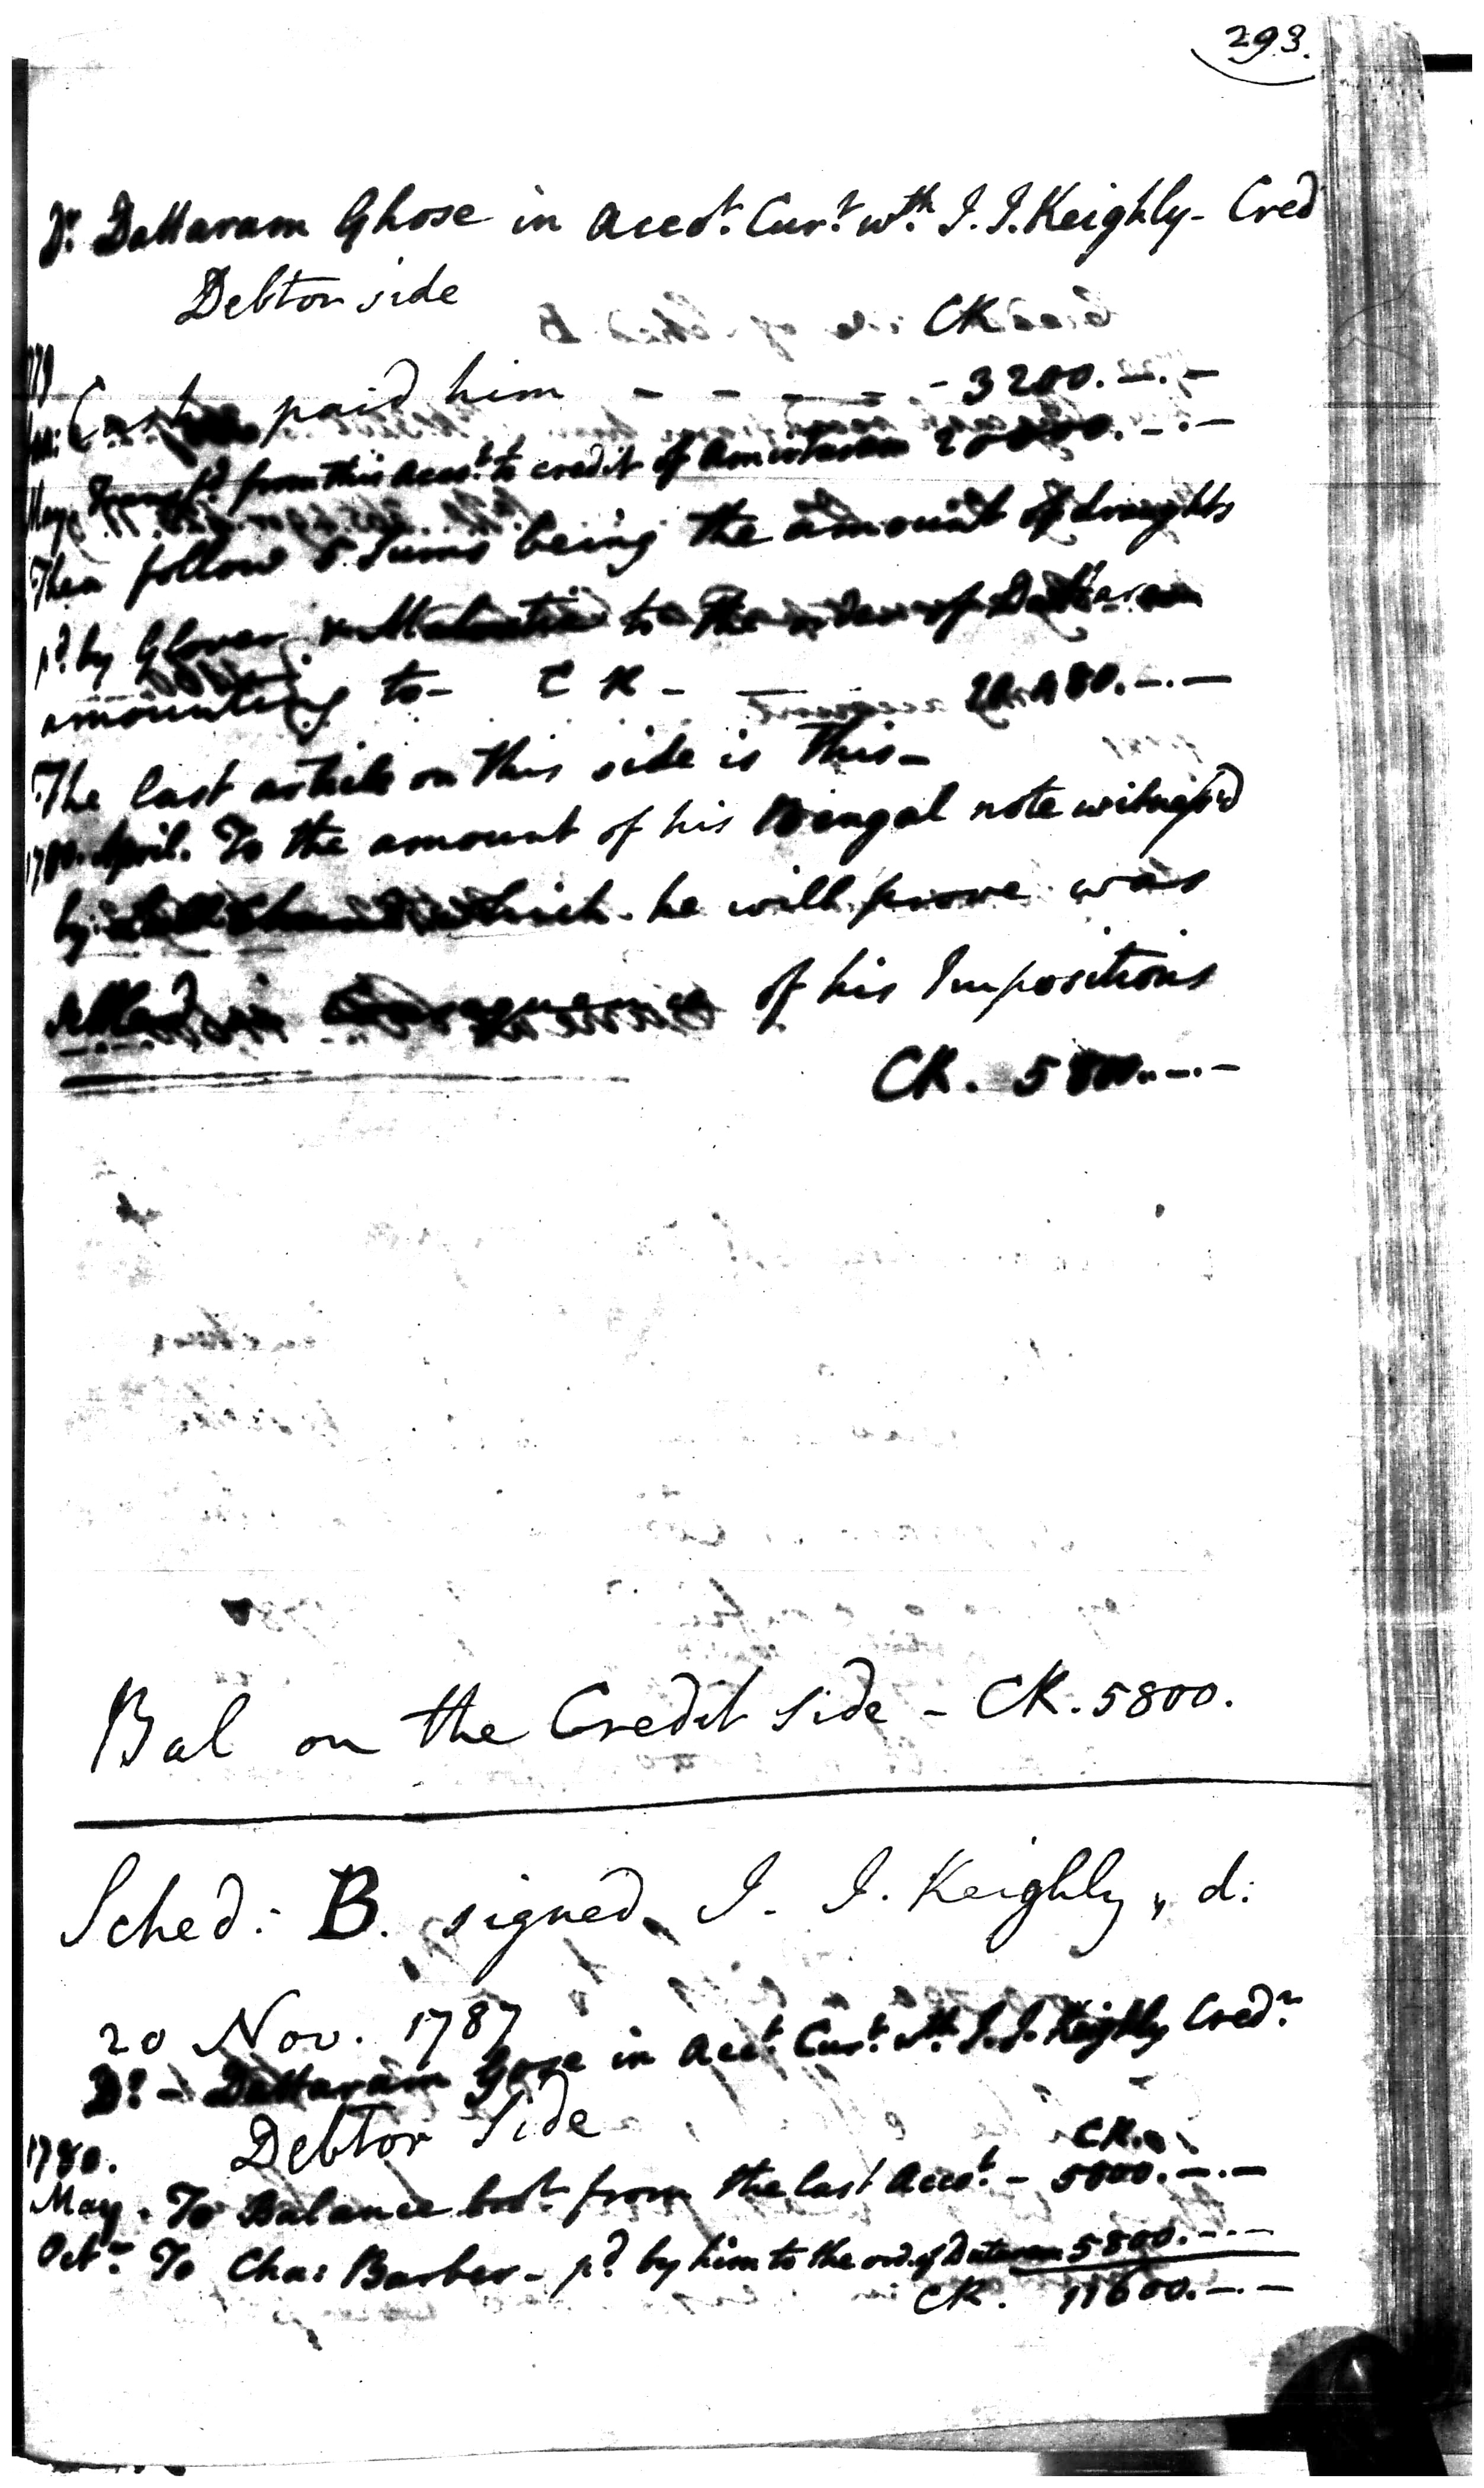 293.
Dr. Dattaram Ghose in Accot. Curt. wth. I. I. Keighly - Cred
Debtor side
CK
Cash paid him - - - - - 3200. - . -
May from this Accot. to credit of
Then follow 5 Sums being the amount of draughts
pd. by Glover & to the order of Dattaram
amounting to - CK -
The last article on this side is this -
1780. April. To the amount of his Bengal note witness'd
by which he will prove was
settled in Consequence of his Impositions
CK. 5800. - . -
Bal on the Credit side - CK. 5800.
Sched: B. signed, I. I. Keighly, d:
20 Nov. 1787
Dr - Dattaram Gose in Acct. Curt. wth. I. I. Keighly Credr
Debtor side
1780. CK.
May. To Balance brot. from the last Accot. - 5800. - . -
Octr. To Cha: Barber - pd. by him to the ord. of Dataram 5800. - . -
CK. 11600. - . -